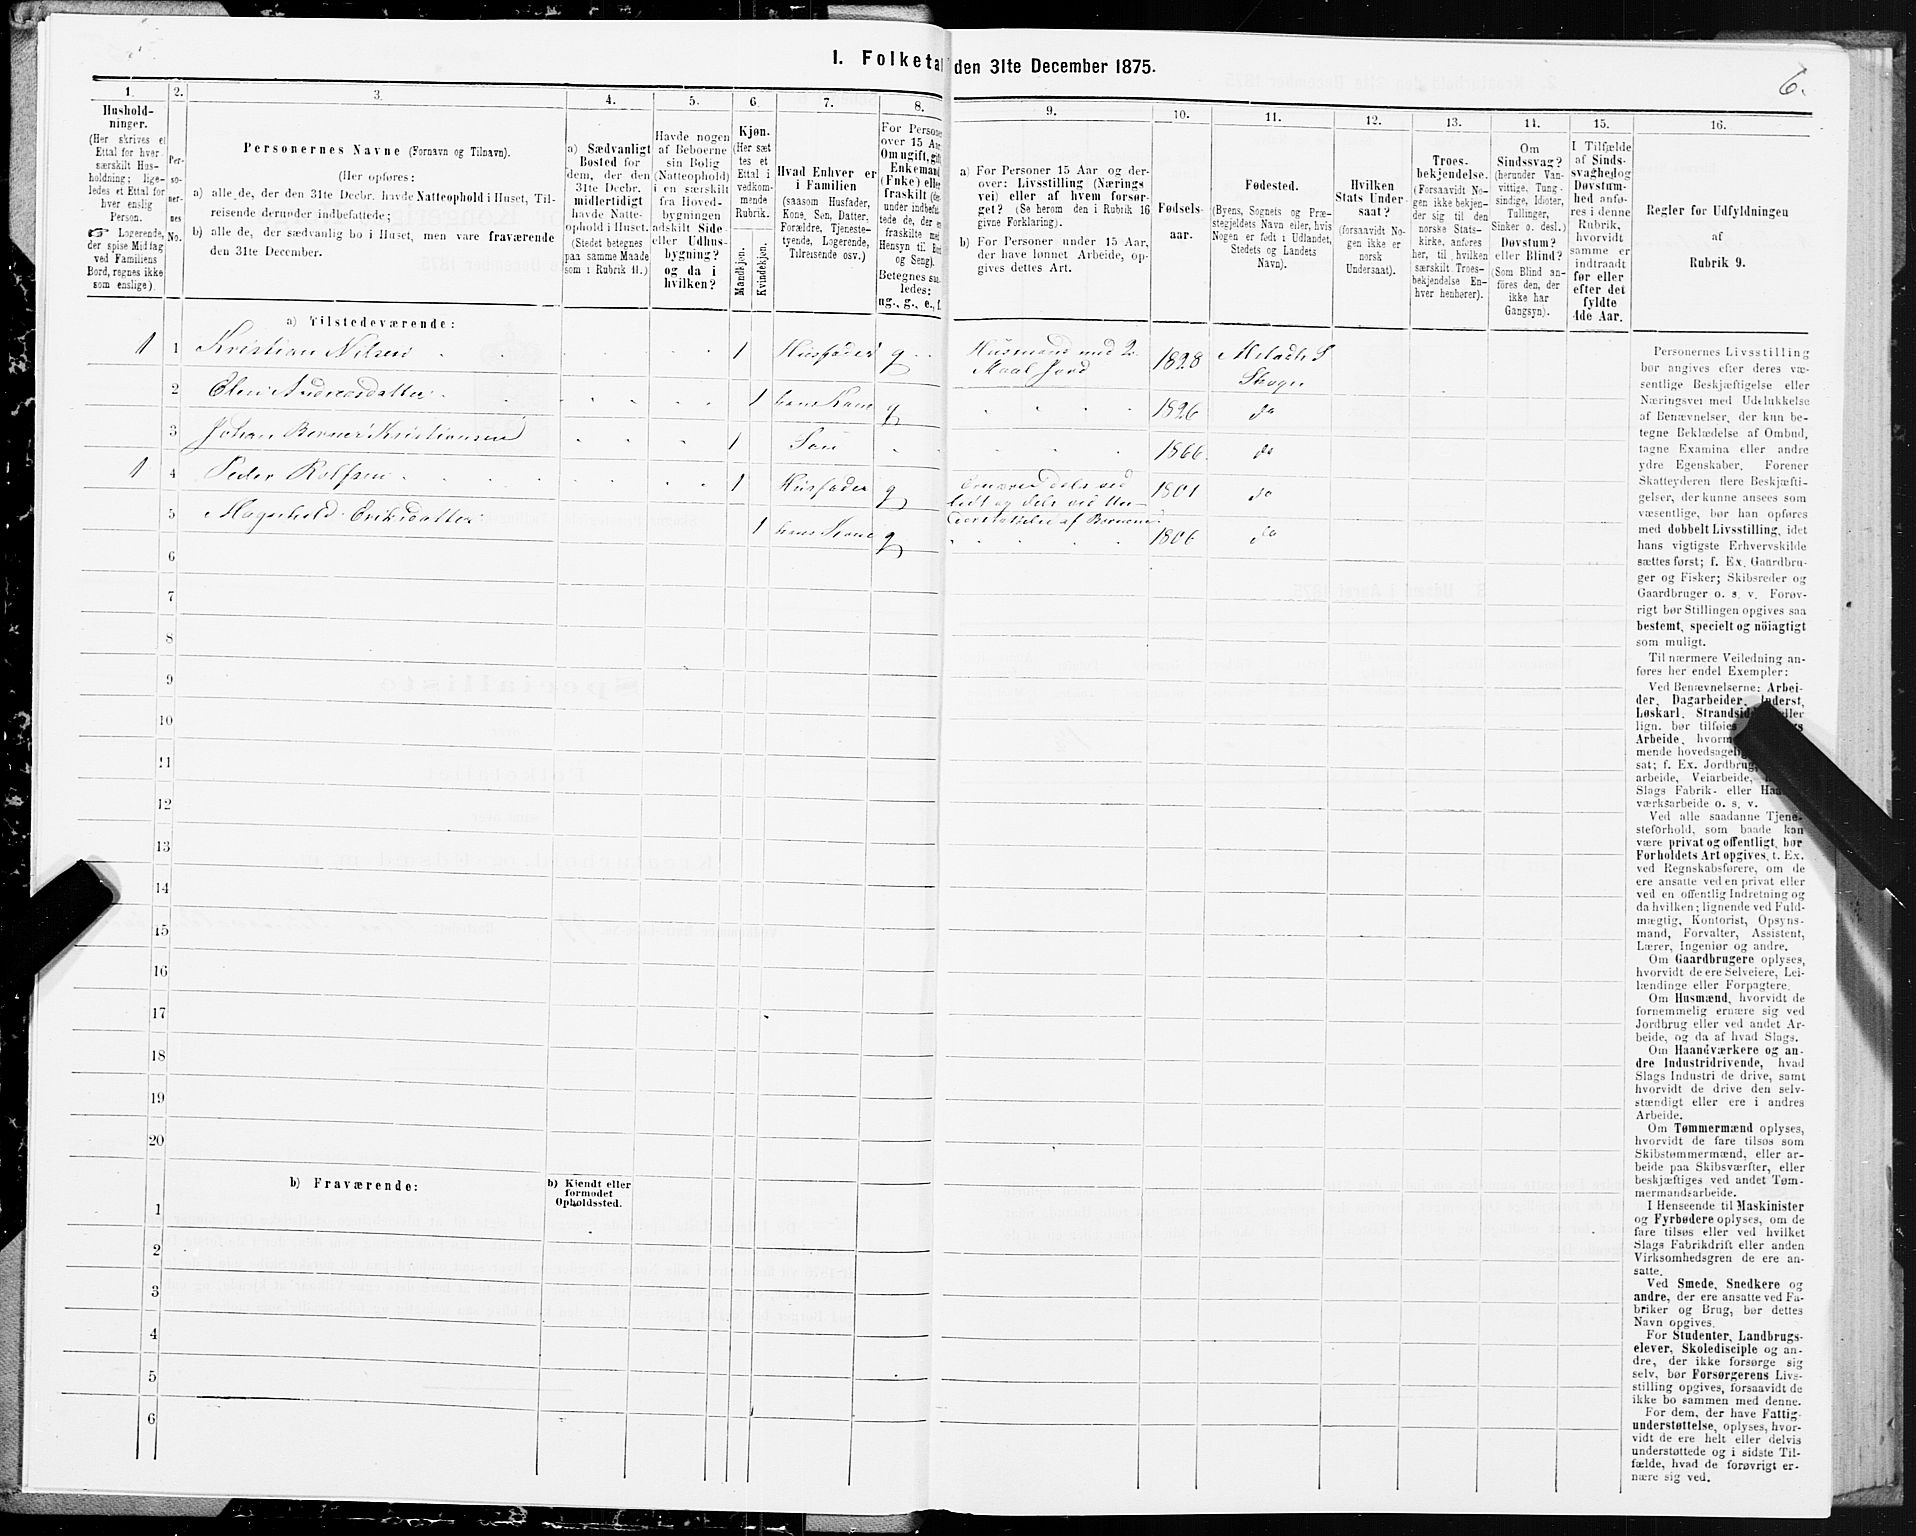 I. Folketal den 31te December 1875.
6.
1.
Hushold-
ninger.
(Her skrives et
Ettal for hver
særskilt Hus-
holdning; lige-
ledes et Ettal for
hver enslig
Person.
☞ Logerende,
der spise Middag
ved Familiens
Bord, regnes ikke
som enslige).
2.
Per-
so-
ner-
nes
No.
3.
Personernes Navne (Fornavn og Tilnavn).
(Her opføres:
a) alle de, der den 31te Decbr. havde Natteophold i Huset, Til-
reisende derunder indbefattede;
b) alle de, der sædvanlig bo i Huset, men vare fraværende
den 31te December.
4.
a) Sædvanligt
Bosted for
dem, der den
31te Decbr.
midlertidigt
havde Natte-
ophold i Huset.
(Stedet betegnes
paa samme Maade
som i Rubrik 11.)
5.
Havde nogen
af Beboerne
sin Bolig
(Natteophold)
i en særskilt
fra Hoved-
bygningen
adskilt Side-
eller Udhus-
bygning?
og da i
hvilken?
6.
Kjøn.
(Her sæt
tes et
Ettal i
vedkom-
mende
Rubrik.
Mandkjøn.
Kvindekjøn.
7.
Hvad Enhver er
i Familien
(saasom Husfader,
Kone, Søn, Datter,
Forældre, Tjeneste-
tyende, Logerende,
Tilreisende osv.)
8.
For Personer
over 15 Aar:
Om ugift, gift,
Enkemand
(Enke) eller
fraskilt (der-
under indbefat-
tede de, der ere
fraskilte med
Hensyn til Bord
og Seng).
Betegnes saa-
ledes:
ug., g., e., f.
9.
a) For Personer 15 Aar og der-
over: Livsstilling (Nærings-
vei) eller af hvem forsør-
get? (Se herom den i Rubrik 16
givne Forklaring).
b) For Personer under 15 Aar,
der have lønnet Arbeide, op-
gives dettes Art.
10.
Fødsels-
aar.
11.
Fødested.
(Byens, Sognets og Præ-
stegjeldets Navn eller, hvis
Nogen er født i Udlandet,
Stedets og Landets
Navn).
12.
Hvilken
Stats Under-
saat?
(forsaavidt No-
gen ikke er
norsk
Undersaat).
13.
Troes-
bekjendelse.
(Forsaavidt No-
gen ikke bekjen-
der sig til den
norske Stats-
kirke, anføres
her, til hvilken
særskilt Troes-
bekjendelse En-
hver henhører).
14.
Om
Sindssvag?
(herunder Van-
vittige, Tung-
sindige, Idioter,
Tullinger,
Sinker o. desl.)
Døvstum?
eller Blind?
(Som Blind an-
føres den, der
ikke har
Gangsyn).
15.
I Tilfælde
af Sinds-
svaghed og
Døvstum-
hed anfø-
res i denne
Rubrik,
hvorvidt
samme er
indtraadt
før eller
efter det
fyldte
4de Aar.
16.
Regler for Udfyldningen
af
Rubrik 9.
a) Tilstedeværende:
1 1 Kristian Nilsen 1 Husfader g Husmand med 2 Maal Jord 1828 S Skogn
2 Elen Andreasdatter 1 hans Kone g 1826 do
3 Johan Berner Kristiansen 1 Søn 1866. do
1 4 Peder Rolfsen 1 Husfader g dels ved og dels ved Un- 1801 do
5 Magnhild Eriksdatter 1 hans Kone g af Børnene 1806 do
6
7
8
9
10
11
12
13
14
15
16
17
18
19
20
b) Fraværende:
b) Kjendt eller
formodet
Opholdssted.
1
2
3
4
5
6
Personernes Livsstilling
bør angives efter deres væ-
sentlige Beskjæftigelse eller
Næringsvei med Udelukkelse
af Benævnelser, der kun be-
tegne Beklædelse af Ombud,
tagne Examina eller andre
ydre Egenskaber. Forener
Skatteyderen flere Beskjæfti-
gelser, der kunne ansees som
væsentlige, bør han opføres
med dobbelt Livsstilling, idet
hans vigtigste Erhvervskilde
sættes først; f. Ex. Gaardbru-
ger og Fisker; Skibsreder og
Gaardbruger o. s. v. Forøv-
rigt bør Stillingen opgives saa
bestemt, specielt og nöiagtigt
som muligt.
Til nærmere Veiledning an-
føres her endel Exempler:
Ved Benævnelserne: Arbei-
der, Dagarbeider, Inderst,
Løskarl, Strandsid eller
lign. bør tilføies
Arbeide, hvorm
mende hovedsagelig
sat; f. Ex. Jordbrug,
arbeide, Veiarbeide,
Slags Fabrik- eller Haand-
værksarbeide o. s. v.
Ved alle saadanne Tjene-
steforhold, som baade kan
være privat og offentligt, bør
Forholdets Art opgives, t. Ex.
ved Regnskabsførere, om de
ere ansatte ved en privat eller
ved en offentlig Indretning og
da hvilken; lignende ved Fuld-
mægtig, Kontorist, Opsyns-
mand, Forvalter, Assistent,
Lærer, Ingeniør og andre.
Om Gaardbrugere oplyses,
hvorvidt de ere Selveiere, Lei-
lændinge eller Forpagtere.
Om Husmænd, hvorvidt de
fornemmelig ernære sig ved
Jordbrug eller ved andet Ar-
beide, og da af hvad Slags.
Om Haandværkere og an-
dre Industridrivende, hvad
Slags Industri de drive, samt
hvorvidt de drive den selv-
stændigt eller ere i andres
Arbeide.
Om Tømmermænd oplyses,
hvorvidt de fare tilsøs som
Skibstømmermænd, eller ar-
beide paa Skibsværfter, eller
beskjæftiges ved andet Tøm-
mermandsarbeide.
I Henseende til Maskinister
og Fyrbødere oplyses, om de
fare tilsøs eller ved hvilket
Slags Fabrikdrift eller anden
Virksomhedsgren de ere an-
satte.
Ved Smede, Snedkere og
andre, der ere ansatte ved Fa-
briker og Brug, bør dettes
Navn opgives.
For Studenter, Landbrugs-
elever, Skoledisciple og an-
dre, der ikke forsørge sig
selv, bør Forsørgerens Livs-
stilling opgives, forsaavidt de
ikke bo sammen med denne.
For dem, der have Fattig-
understøttelse, oplyses, hvor-
vidt de ere helt eller delvis
understøttede og i sidste Til-
fælde, hvad de forøvrigt er-
nære sig ved.